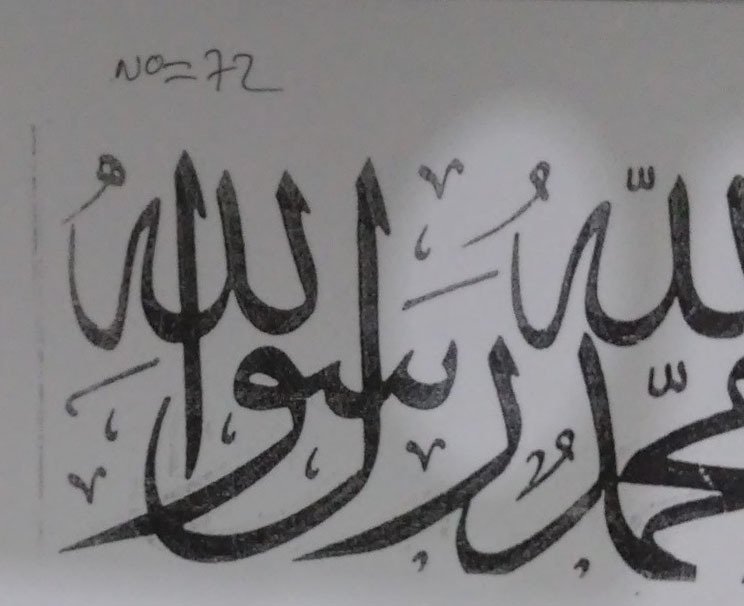 No=72
الله
محمد رسول الله